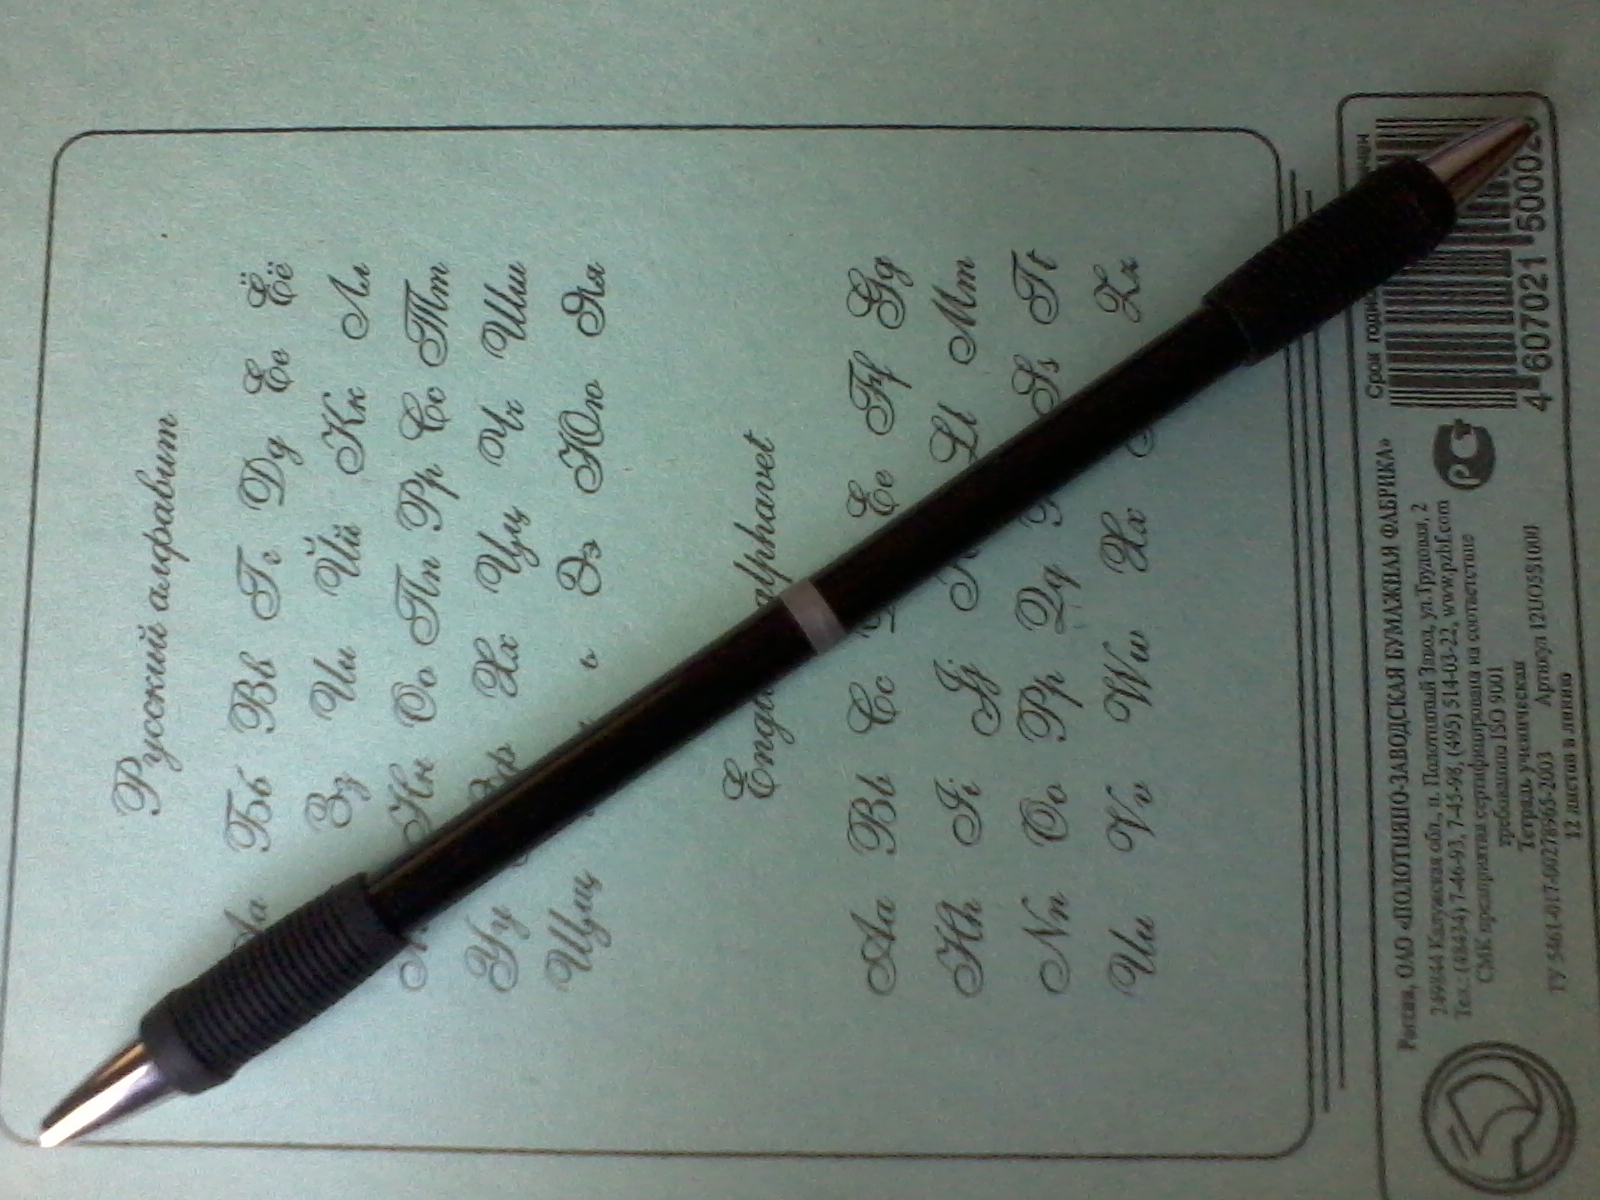 Русский алфавит
Аа Бб Вв Гг Дд Ее Ёё
Зз Ии Йй Кк Лл
Нн Оо Пп Рр Сс Тт
Уу Хх Цц Чч Шш
Щщ ь Ээ Юю Яя
alphavet
Aa Bb Cc Ee Ff Gg
Hh Ii Jj Ll Mm
Nn Oo Pp Qq Ss Tt
Uu Vv Ww Xx Zz
Россия, ОАО «ПОЛОТНЯНО-ЗАВОДСКАЯ БУМАЖНАЯ ФАБРИКА»
249844 Калужская обл., п. Полотняный Завод, ул.Трудовая, 2
Тел.: (48434) 7-46-93, 7-45-96, (495) 514-03-22, www.pzbf.com
СМК предприятия сертифицирована на соответствие
требованию ISO 9001
Тетрадь ученическая
ТУ 5461-017-00278965-2003 Артикул 12UO5S1000
12 листов в линию
Срок
4 607021 50002
РСТ